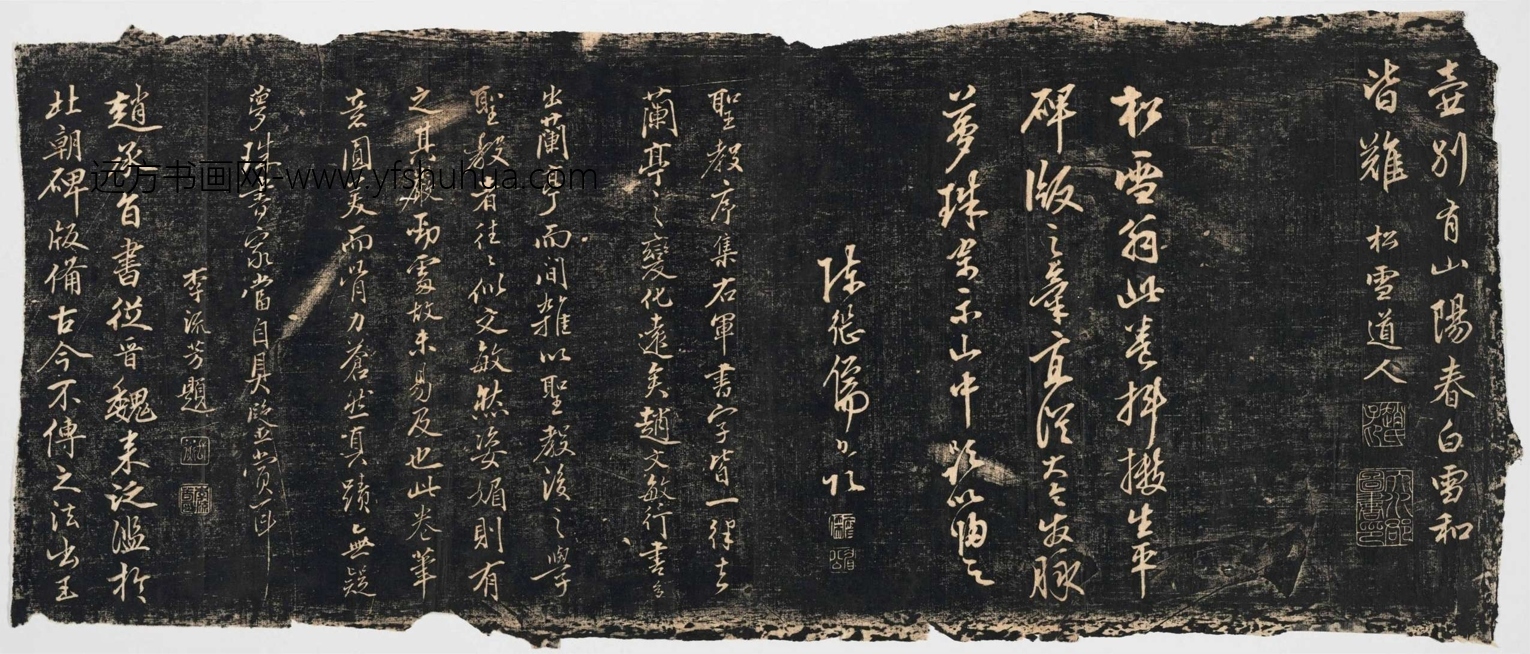 壺別有山陽春白雪和
皆難 松雪道人
松雪翁此卷抖擻生平
碑版之氣直從大令发脉
夢珠示山中
聖教序集右軍書字皆一律去
蘭亭之變化遠矣趙文敏行書多
出蘭亭而间雜以聖教後之學
聖教者往〻似文敏然姿媚則有
之其遒勁處故未易及也此卷筆
意圓美而骨力蒼然真蹟無疑
夢珠書家當自具隻眼
李流芳題
趙承旨書從晉魏来泛濫於
北朝碑版備古今不傳之法出王
远方书画网-www.yfshuhua.com